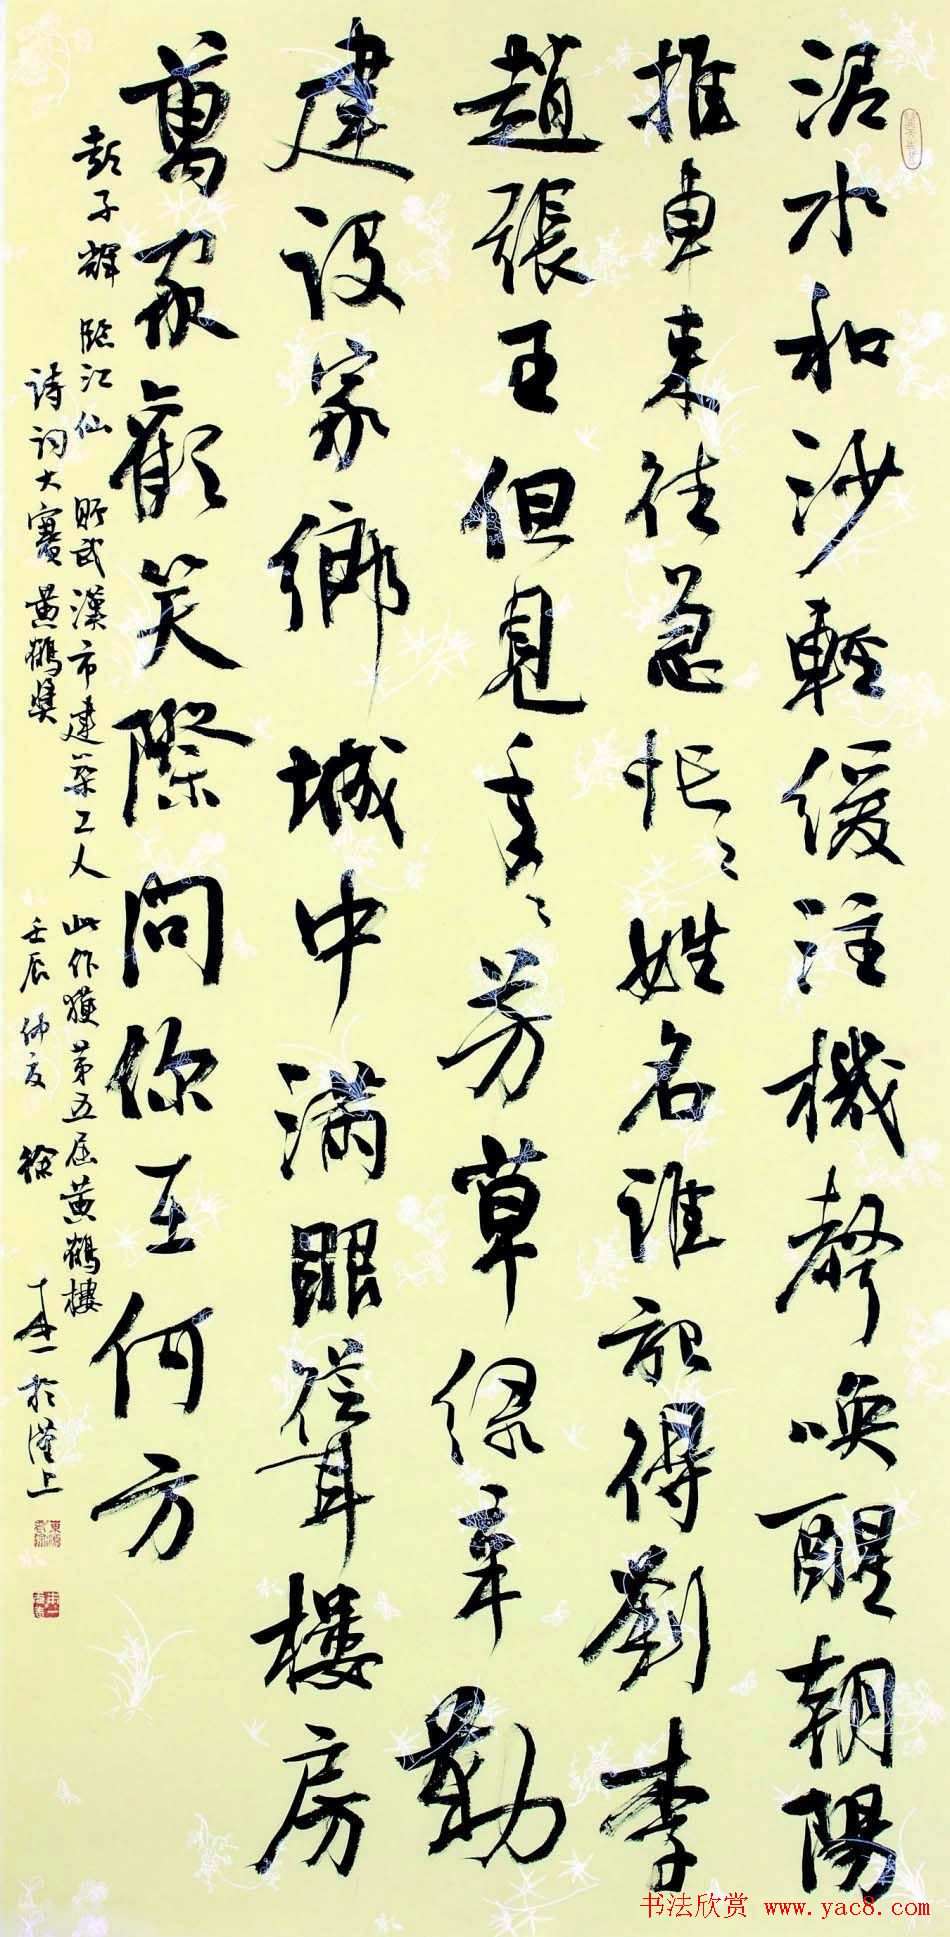 泥水和沙輕緩注機聲喚醒朝陽
推車来往急忙〻姓名誰記得劉李
趙張王但見年〻芳草緑辛勤
建設家鄉城中滿眼聳樓房
萬家歡笑際問你在何方
彭子輝 臨江仙 贈武漢市建築工人 此作獲第五屆黄鶴樓
詩詞大賽黄鶴獎 壬辰仲夏 徐本一於漢上
书法欣赏 www.yac8.com